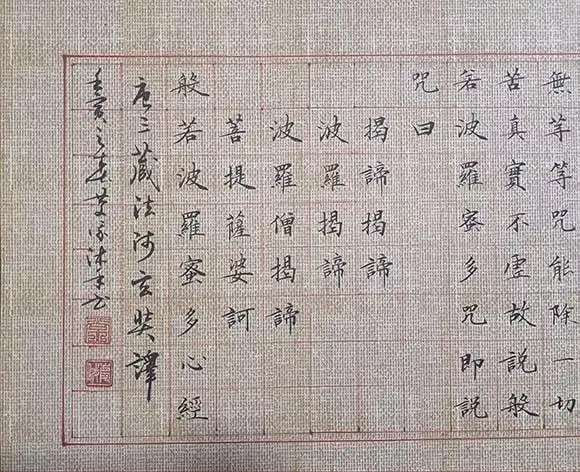 無等等咒能除一切
苦真實不虛故說般
若波羅蜜多咒即說
咒曰
揭諦揭諦
波羅揭諦
波羅僧揭諦
菩提薩婆訶
般若波羅蜜多心經
唐三藏法師玄奘譯
之春